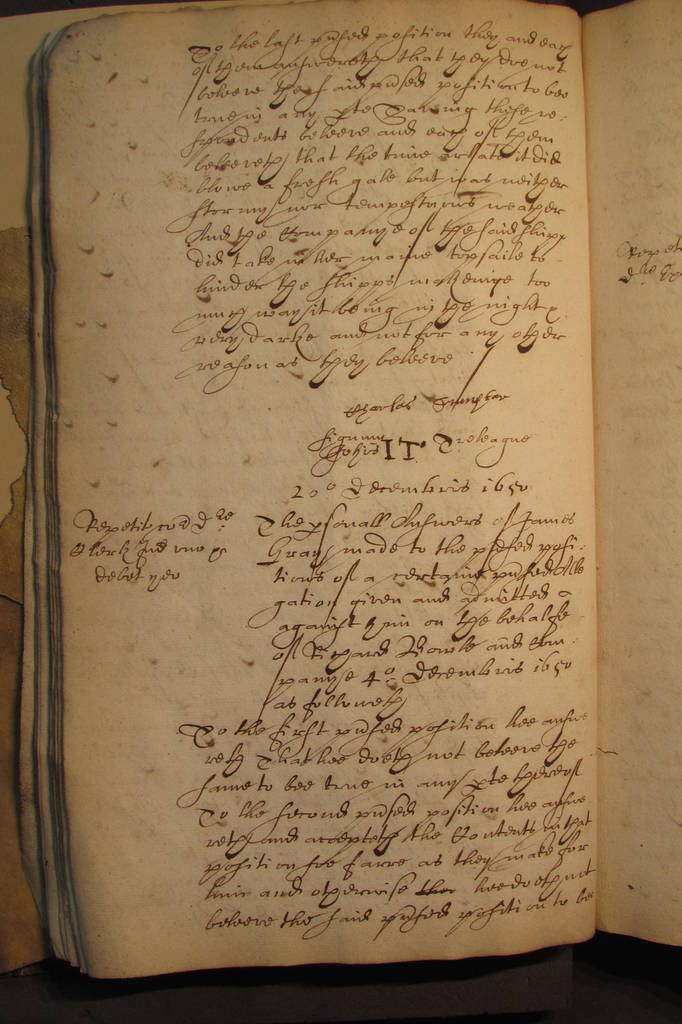 To the last pnsed position they and each
of them answereth that they doe not
beleeve the said pnsed position to bee
true in any pte Saveing these re-
spondents beleeve and each of them
beleeveth that the time arlate it did
blowe a fresh gale but was neither
stormy nor tempestious weather
And the Companye of the said shipp
did take in her maine topsaile to
hinder the shipps makeinge too
much way it being in the night
very darke and not for any other
reason as they beleeve
Charles
Signum
Johis IT Treleague
20º Decembris 1650
Repetit cora Dre
Clerk
The psonall Answers of James
Gray made to the pnsed posi-
tions of a certaine pnsed Alle
gation given and admitted
against him on the behalfe
of Richard and Com-
panye 4º Decembris 1650
as followeth
To the first pnsed position hee answe
reth That hee doeth not beleeve the
same to bee true in any pte thereof
To the second pnsed position hee answe
reth and accepteth the Contents in that
position soe farre as they make for
him and otherwise hee doeth not
beleeve the said pnsed position to bee
Repet